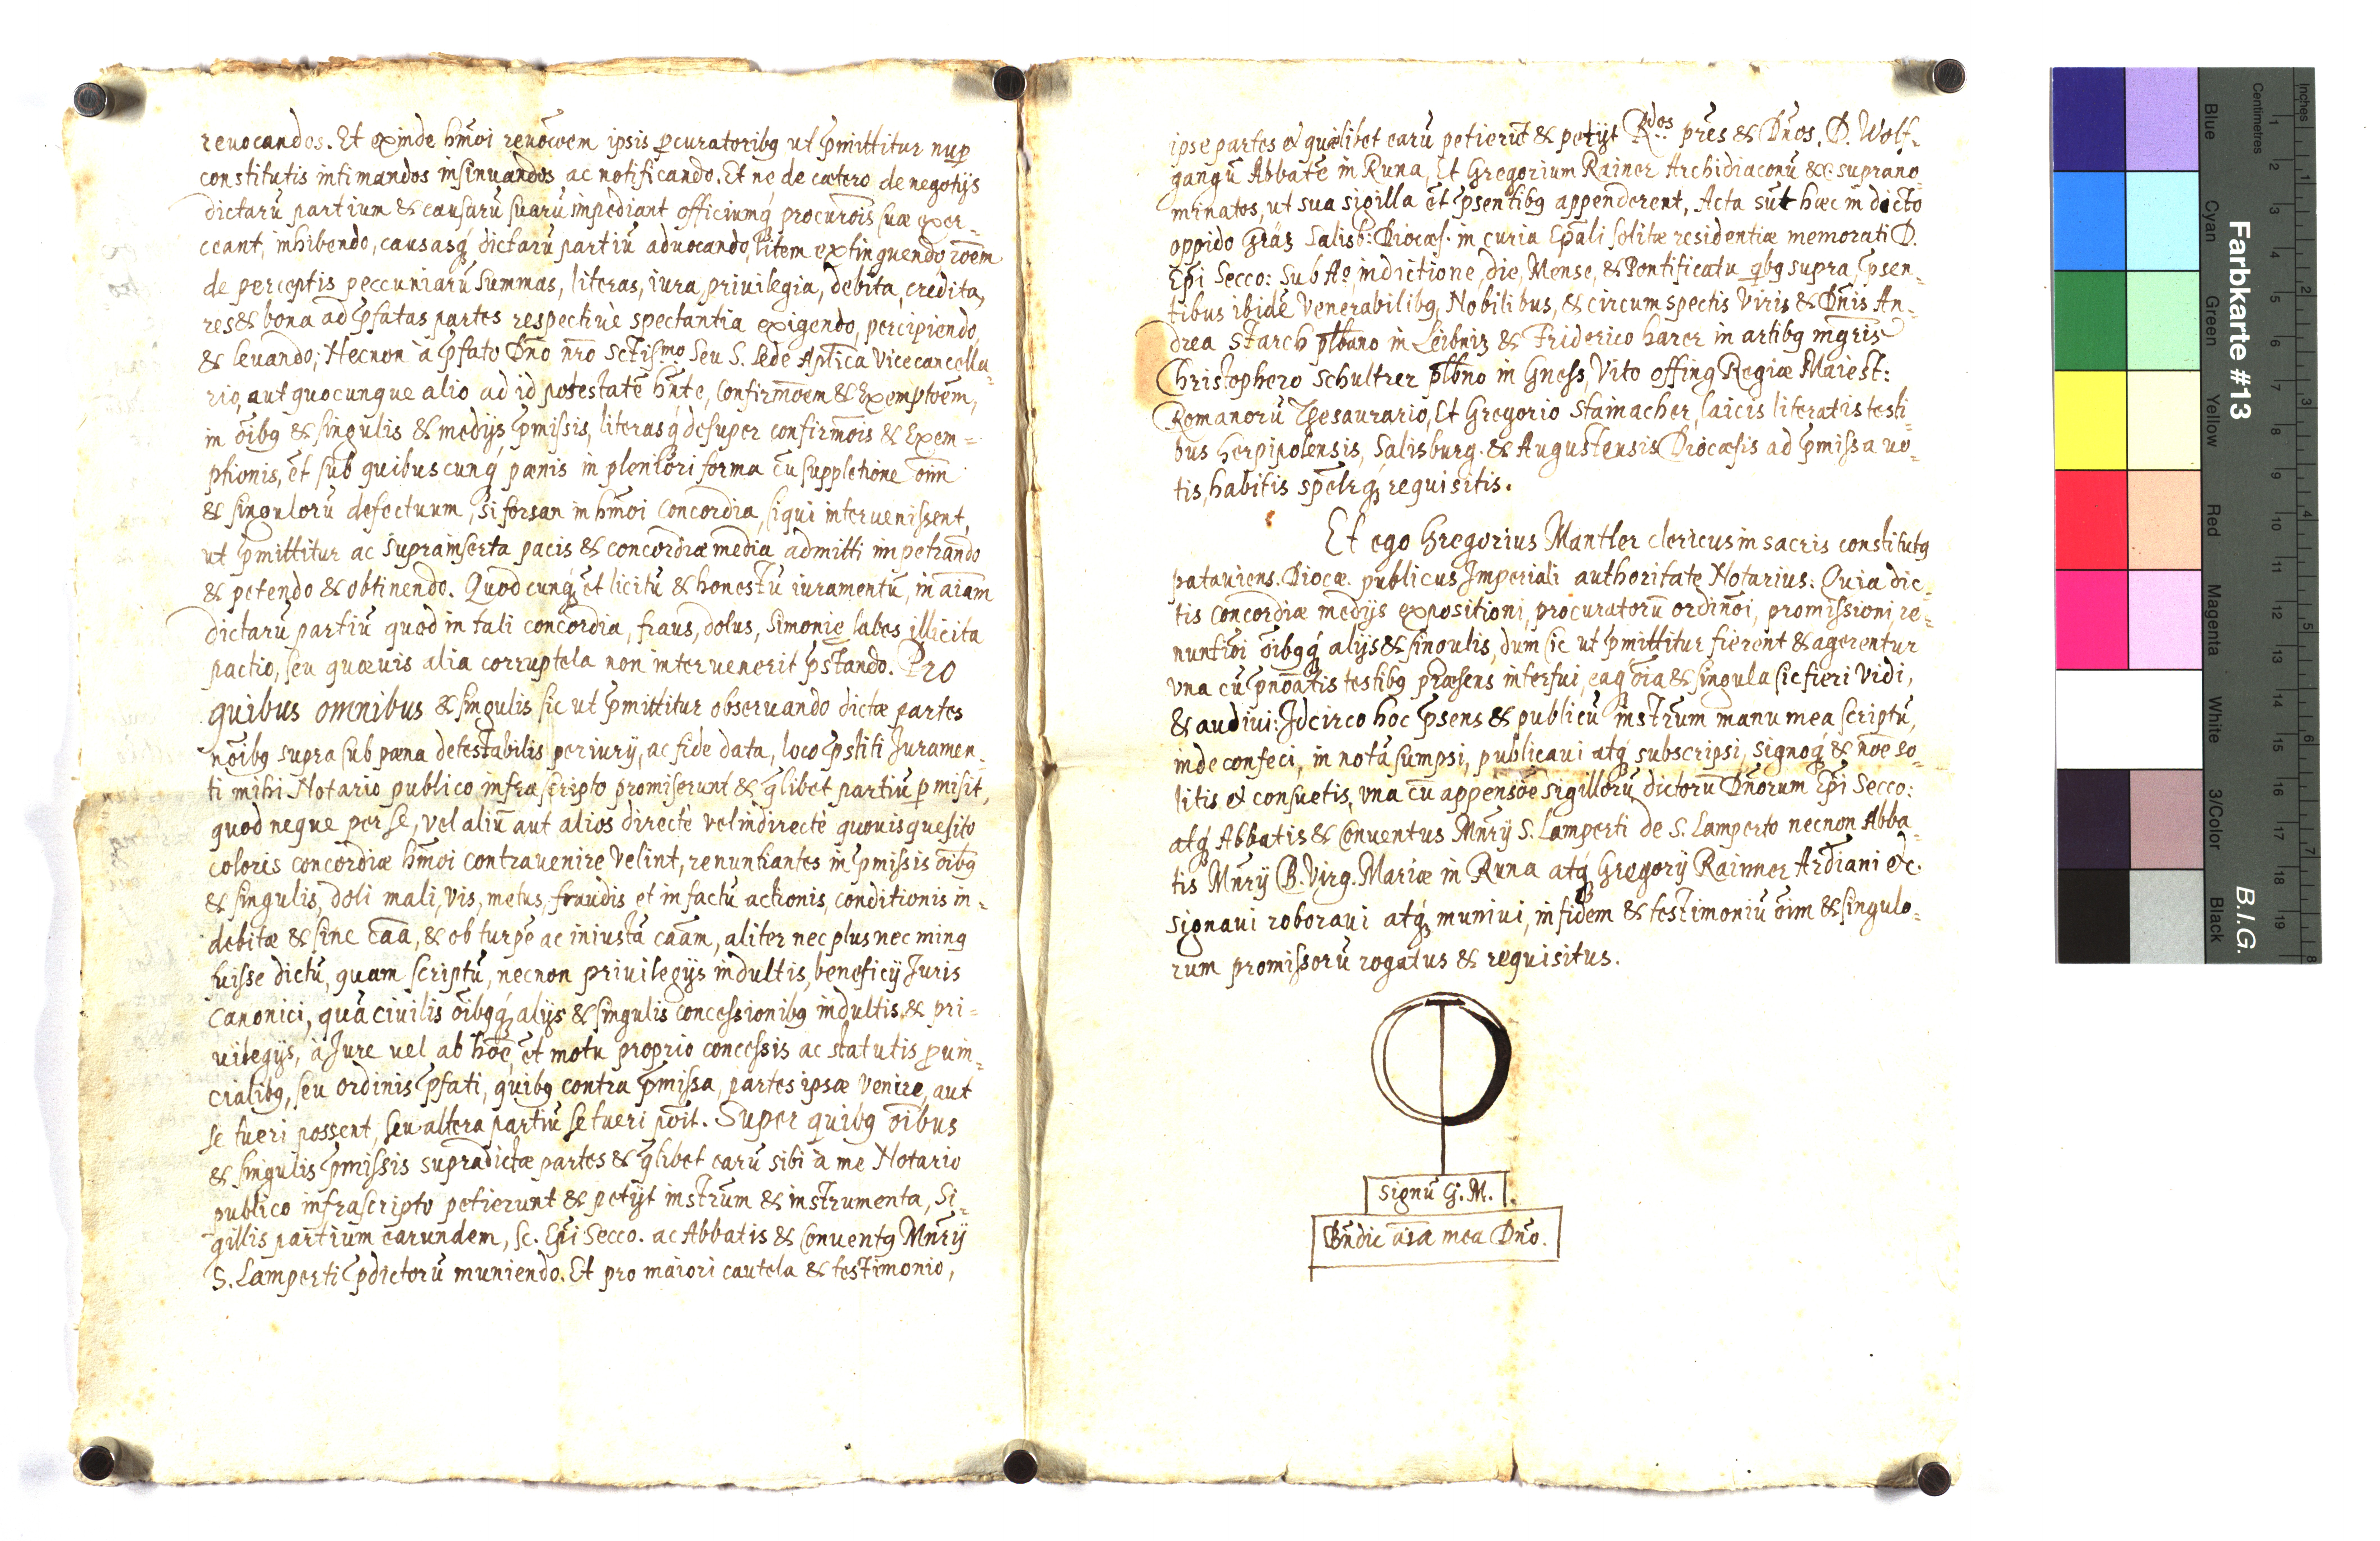 reuocandos. Et exinde hm̄oi reuōcoem ipsis ꝓcuratoribꝰ ut p̄mittitur nuꝑ
constitutis intimandos insinuandos ac notificando. Et ne de cætero de negotijs
dictarū partium & causarū suarū impediant officiumq́ procurōis suæ exer-
ceant, inhibendo, causasq́ dictarū partiū aduocando, litem extinguendo rōem
de perceptis peccuniarū summas, literas, iura, priuilegia, debita, credita,
res & bona ad p̄fatas partes respectiuè spectantia exigendo, percipiendo,
& leuando; Necnon à p̄fato Dn̄o nr̄o Sctiſmo seu S. Sede Aplīca Vicecancella-
rio, aut quocunque alio ad id potestatē hn̄te, Confirmōem & Exemptōem,
in oībꝰ & singulis & medijs p̄missis, literasq́ desuper confirmōis & Exem=
ptionis, et sub quibuscunq́ pœnis in pleniōri forma cū suppletione oīm
& singulorū defectuum, si forsan in hm̄oi Concordia, siqui interuenissent,
ut p̄mittitur ac suprainserta pacis & concordiæ media admitti impetrando
& petendo & obtinendo. Quodcunq́ et licitū & honestū iuramentū, in aīam
dictarū partiū quod in tali concordia, fraus, dolus, Simonię labes illicita
pactio, seu quæuis alia corruptela non interuenerit p̄stando. Pro
quibus omnibus & singulis sic ut p̄mittitur obseruando dictæ partes
nōibꝰ supra sub pœna detestabilis periurij, ac fide data, loco p̄stiti Juramen-
ti mihi Notario publico infrascripto promiserunt & q̄libet partiū ꝓmisit,
quod neque per se, vel aliū aut alios directè vel indirectè quouis quesito
coloris concordiæ hm̄oi contrauenire velint, renuntiantes in p̄missis oībꝰ
& singulis, doli mali, vis, metus, fraudis et in factū actionis, conditionis in-
debitæ & sine cāā, & ob turpē ac iniustā caām, aliter nec plus nec minꝰ
fuisse dictū, quam scriptū, necnon priuilegijs indultis, beneficij Juris
Canonici, quā ciuilis oībꝰq́ alijs & singulis concessionibꝰ indultis, & pri-
uilegijs, à Jure uel ab hōe, et motu proprio concessis ac statutis ꝓuin-
cialibꝰ, seu ordinis p̄fati, quibꝰ contra p̄missa, partes ipsæ venire, aut
se tueri possent, seu altera partiū se tueri pōit. Super quibꝰ oībus
& singulis p̄missis supradictæ partes & q̄libet earū sibi à me Notario
publico infrascripto petierunt & petijt instrūm & instrumenta, Si-
gillis partium earundem, sc. Ep̄i Secco. ac Abbatis & Conuentꝰ Mn̄rij
S. Lamperti p̄dictorū muniendo. Et pro maiori cautela & testimonio,
ipse partes et quælibet earū petierūt & petijt Rdos pr̄es & Dn̄os, D. Wolf-
gangū Abbatē in Runa, Et Gregorium Rainer Archidiaconū &c: suprano-
minatos, ut sua sigilla et p̄sentibꝰ appenderent, Acta sūt hæc in dicto
oppido Gräz Salisb: Diocæs. in curia Epāli solitæ residentiæ memorati D.
Ep̄i Secco: Sub Aº, indictione, die, Mense, & Pontificatu qbꝰ supra, p̄sen-
tibus ibidē Venerabilibꝰ, Nobilibus, & circumspectis Viris & Dn̄is An-
drea Starch plb̄ano in Leibniz & Friderico harer in artibꝰ mgr̄is
Christophero Schultrer plb̄no in Gness, Vito offing Regiæ Maiest:
Romanorū Thesaurario, Et Gregorio Stainacher, laicis literatis testi-
bus herpipolensis, Salisburg. & Augustensis Diocæsis ad p̄missa uo-
tis, habitis spēlrq́ requisitis.
Et ego Gregorius Mantler clericus in sacris constitutꝰ
patauiens. Diocæ. publicus Imperiali authoritate Notarius: Quia dic-
tis Concordiæ medijs expositioni, procuratorū ordinōi, promissioni, re-
nuntiōi oībꝰq́ alijs & singulis, dum sic ut p̄mittitur fierent & agerentur
vna cū p̄noātis testibꝰ præsens interfui, eaq́ oīa & singula sic fieri vidi,
& audiui: Idcirco hoc p̄sens & publicū instrūm manu mea scriptū,
inde confeci, in notā sumpsi, publicaui atq́ subscripsi, signoq́ & nōe so-
litis et consuetis, vna cū appensōe sigillorū dictorū Dn̄orum Ep̄i Secco:
atq́ Abbatis & Conuentus Mn̄rij S. Lamperti de S. Lamperto necnon Abba-
tis Mn̄rij B. Virg. Mariæ in Runa atq́ Gregorij Rainner Ardiāni etc.
signaui roboraui atq́ muniui, in fidem & testimoniū oīm & singulo-
rum promissorū rogatus & requisitus.
Signū G. M.
Bn̄dic aīa mea Dn̄o.
Farbkarte #13
B.I.G.
Centimetres
Inches
Blue
Cyan
Green
Yellow
Red
Magenta
White
3/Color
Black
1 2 3 4 5 6 7 8 9 10 11 12 13 14 15 16 17 18 19
1 2 3 4 5 6 7 8